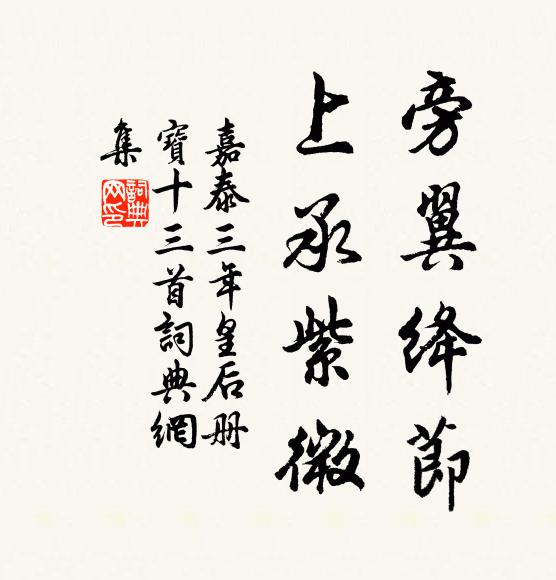 旁翼绛節
上承紫微
嘉泰三年皇后册
寶十三首詞典網
集
詞典
网印